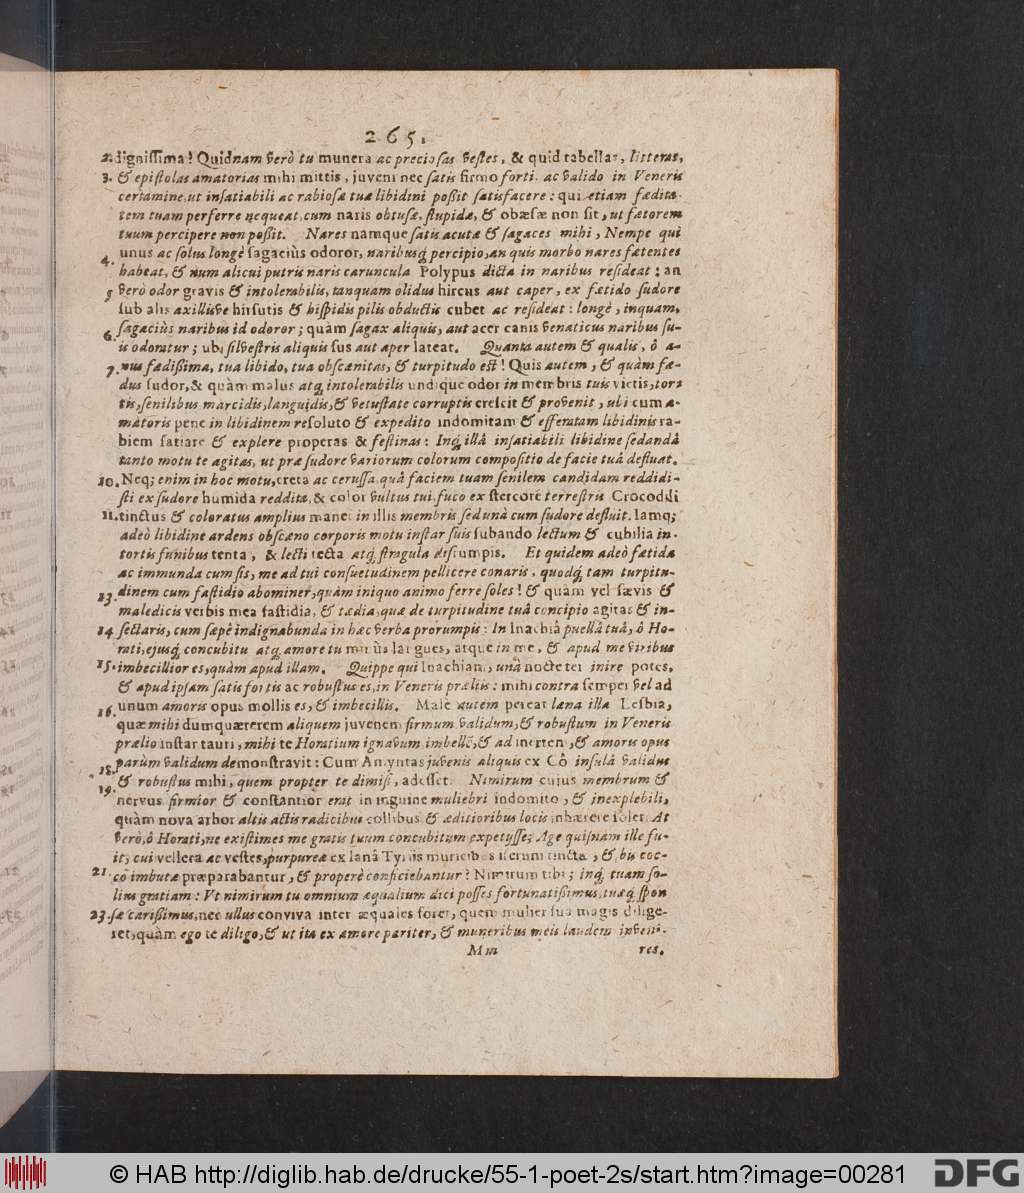 265.
2. dignissima? Quidnam verò tu munera ac preciosas vestes, & quid tabellas, litteras,
3. & epistolas amatorias mihi mittis, juveni nec satis firmo forti ac valido in Veneris
certamine, ut insatiabili ac rabiosæ tuæ libidini possit satisfacere: qui etiam fædita-
tem tuam perferre nequeat, cum naris obtusæ, stupidæ, & obæsæ non sit, ut fætorem
tuum percipere non possit. Nares namque satis acutæ & sagaces mihi, Nempe qui
4. unus ac solus longè sagaciùs odoror, naribusq; percipio, an quis morbo nares fætentes
habeat, & num alicui putris naris caruncula Polypus dicta in naribus resideat: an
5 verò odor gravis & intolerabilis, tanquam olidus hircus aut caper, ex fætido sudore
sub alis axillisve hirsutis & hispidis pilis obductis cubet ac resideat: longè, inquam,
6. sagaciùs naribus id odoror; quàm sagax aliquis, aut acer canis venaticus naribus su-
is odoratur; ubi silvestris aliquis sus aut aper lateat. Quanta autem & qualis, ô a-
7. nus fædissima, tua libido, tua obscænitas, & turpitudo est! Quis autem, & quàm fæ-
dus sudor, & quàm malus atq; intolerabilis undique odor in membris tuis vietis, tora
tis, senilibus marcidis, languidis, & vetustate corruptis crescit & provenit, ubi cum a-
matoris pene in libidinem resoluto & expedito indomitam & efferatam libidinis ra-
biem satiare & explere properas & festinas: Inq; illâ insatiabili libidine sedandâ
tanto motu te agitas, ut præ sudore variorum colorum compositio de facie tuâ defluat.
10. Neq; enim in hoc motu, creta ac cerussa, quâ faciem tuam senilem candidam reddidi-
sti ex sudore humida reddita, & color vultus tui, fuco ex stercore terrestris Crocodili
11. tinctus & coloratus amplius manet in illis membris sed unà cum sudore defluit. Iamq;
adeò libidine ardens obscæno corporis motu instar suis subando lectum & cubilia in-
tortis funibus tenta, & lecti tecta atq; stragula discumpis. Et quidem adeò fætida
ac immunda cum sis, me ad tui consuetudinem pellicere conaris, quodq; tam turpitu-
13. dinem cum fastidio abominer, quàm iniquo animo ferre soles! & quàm vel sævis &
maledicis verbis mea fastidia, & tædia, quæ de turpitudine tuâ concipio agitas & in-
14. sectaris, cum sæpè indignabunda in hæc verba prorumpis: In Inachiâ puellâ tuâ, ô Ho-
rati, ejusq; concubitu atq; amore tu minùs langues, atque in me, & apud me viribus
15. imbecillior es, quàm apud illam. Quippe qui Inachiam, unâ nocte ter inire potes,
& apud ipsam satis fortis ac robustus es, in Veneris præliis: mihi contra semper vel ad
16. unum amoris opus mollis es, & imbecillis. Male autem pereat læna illa Lesbia,
quæ mihi dum quærerem aliquem juvenem firmum validum, & robustum in Veneris
prælio instar tauri, mihi te Horatium ignavum imbellẽ, & ad inertem, & amoris opus
parùm validum demonstravit: Cum Amyntas juvenis aliquis ex Cô insulâ validus
18. & robustus mihi, quem propter te dimisi, adesset. Nimirum cujus membrum &
19. nervus firmior & constantior erat in inguine muliebri indomito, & inexplebili,
quàm nova arbor altis actis radicibus collibus & æditioribus locis inhærere solet. At
verò, ô Horati, ne existimes me gratis tuum concubitum expetisse; Age quisnam ille fu-
it; cui vellera ac vestes, purpureæ ex lanâ Tyriis muricibus iterum tincta, & bis coc-
21. co imbutæ præparabantur, & properè conficiebantur? Nimirum tibi; inq; tuam so-
lius gratiam: Ut nimirum tu omnium æqualium dici posses fortunatissimus, tuæq; spon
23. sæ carissimus, nec ullus conviva inter æquales foret, quem mulier sua magis dilige-
ret, quàm ego te diligo, & ut ita ex amore pariter, & muneribus meis laudem inveni-
Mm res.
© HAB http://diglib.hab.de/drucke/55-1-poet-2s/start.htm?image=00281
DFG